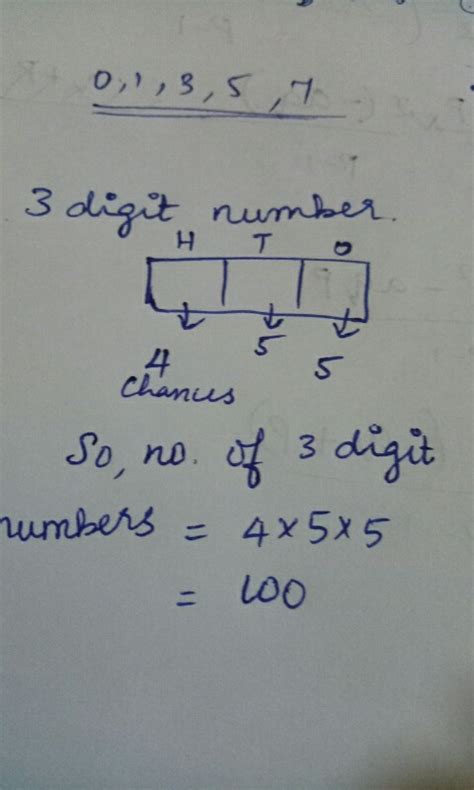 0, 1, 3, 5, 7
3 digit number.
H T O
4 5 5
Chances
So, no. of 3 digit
numbers = 4×5×5
= 100